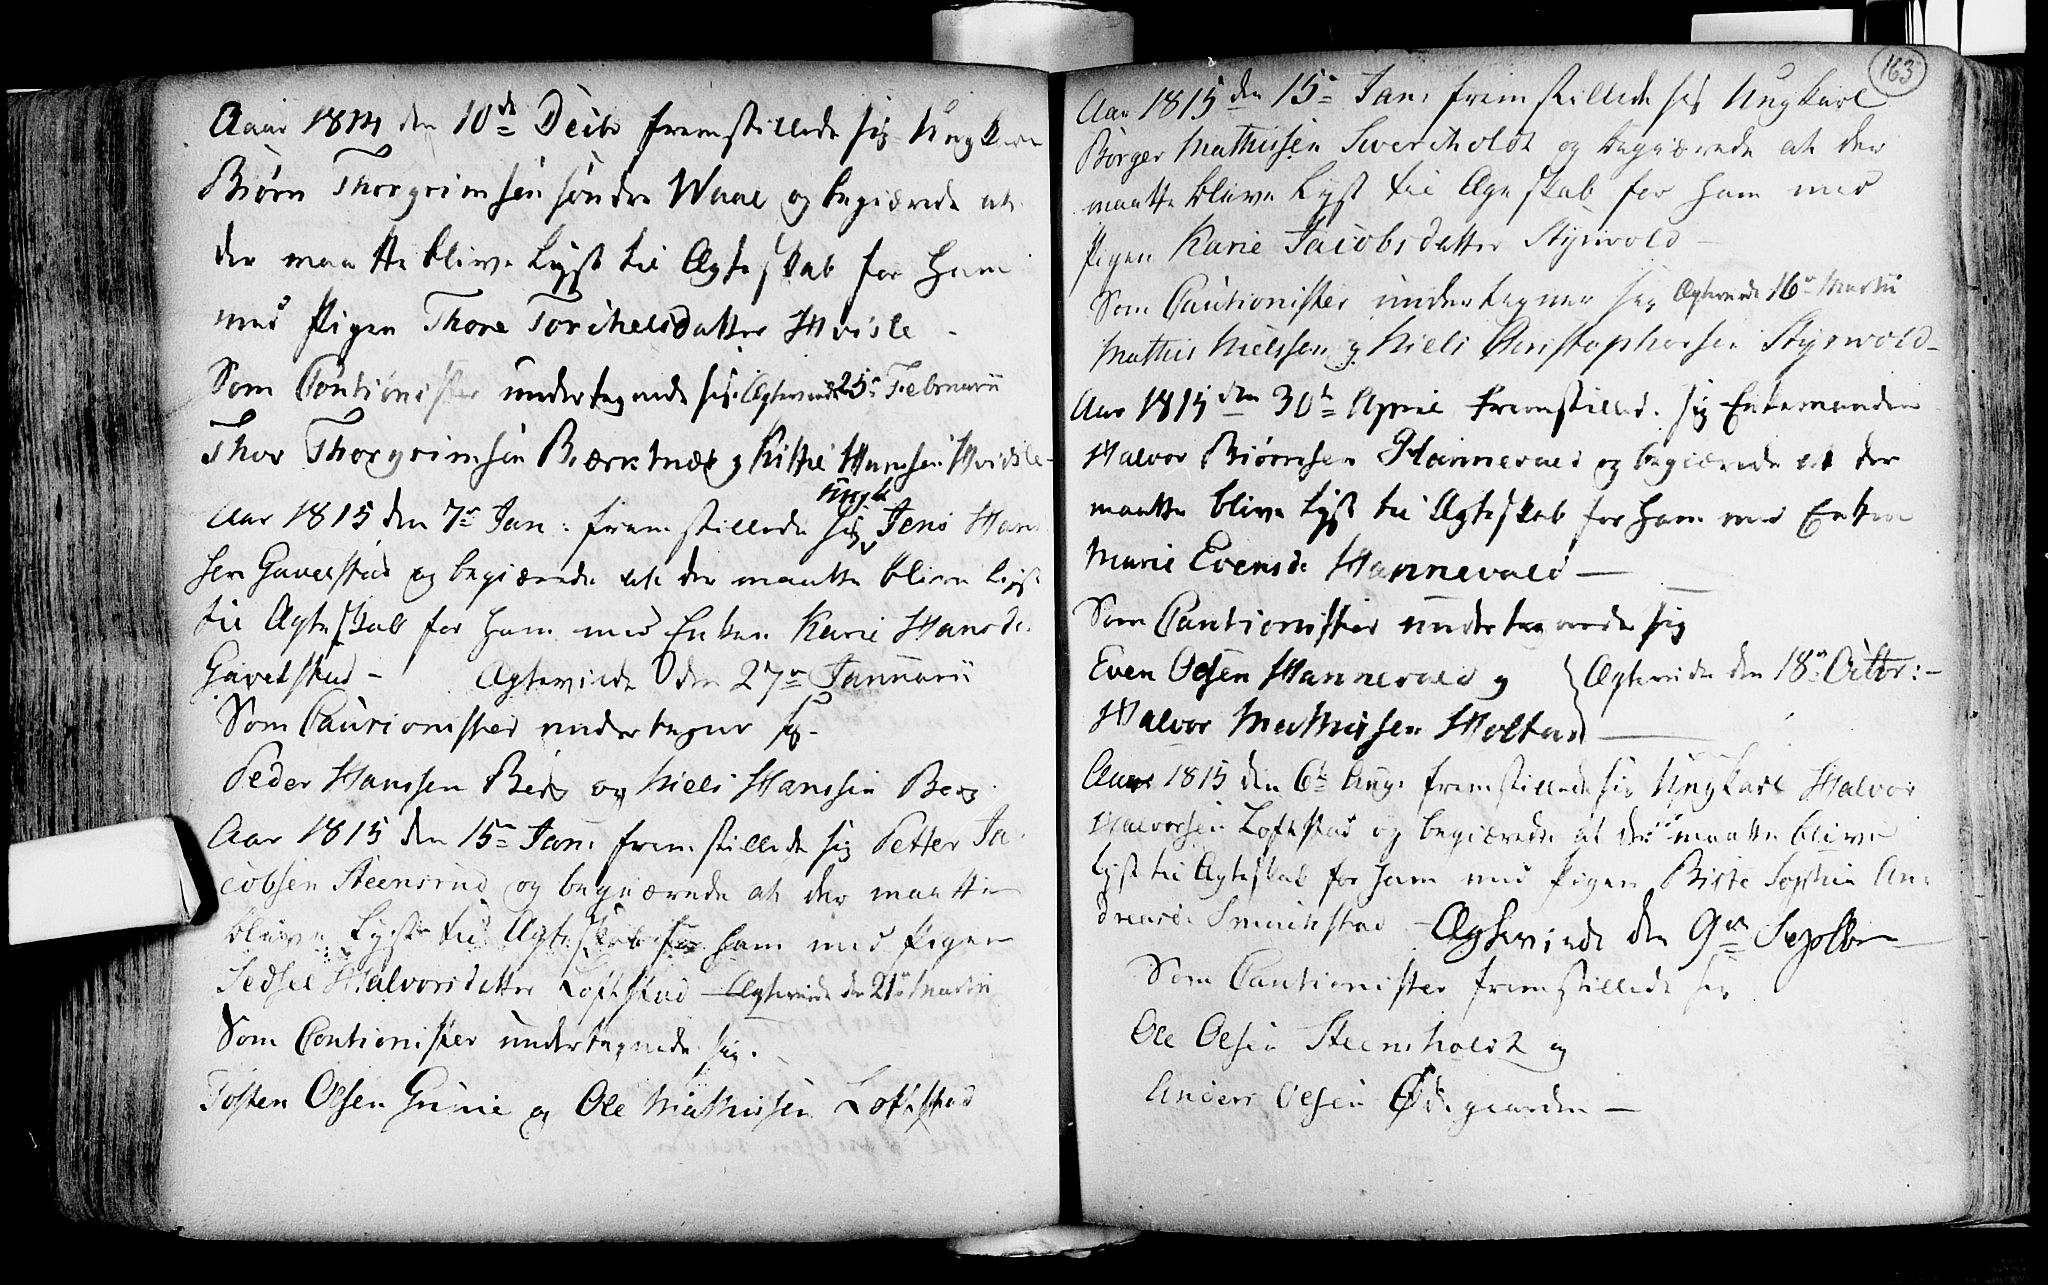 Aar 1814 den 10de Decb fremstillede sig Ungkarl
Biørn Thorgrimsen søndre Waal og begiærede at
der maatte blive Lyst til Ægteskab for ham
med Pigen Thore Torchelsdatter Hvisle -
Som Cautionister undertegnede sig. Ægteviede 25de Februarii
Thor Thorgrimsen Biærknæs og Kittil Hansen Hvidsle -
Ungk
Aar 1815 den 7de Jan: fremstillede sig Jens Han
sen Gavelstad og begiærede at der maatte blive Lyst
til Ægteskab for ham med Enken Karie Hansd:
Gavelstad - Ægteviede den 27de Januarii
Som Cautionister undertegner sig -
Peder Hanssen Berg og Niels Hanssen Berg
Aar 1815 den 15de Jan: fremstillede sig Petter Ja-
cobsen Steensrud og begiærede at der maatte
blive Lyst til Ægteskab for ham med Pigen
Sedsel Halvorsdatter Loftstad - Ægteviede den 21de Martii
Som Contionister undertegnede sig.
Tosten Olsen Grinie og Ole Mathissen Loftstad
163
Aar 1815 den 15de Jan: fremstillede sig Ungkarl
Børger Mathissen Sveriholdt og begiærede at der
maatte blive Lyst til Ægteskab for ham med
Pigen Karie Jacobsdatter Styrvold -
Som Cautionister undertegner sig Ægteviede 16de Martii
Mathis Nielssen og Niels Christophersen Styrvold -
Aar 1815 den 30te April fremstillede sig Enkemanden
Halvor Biørnsen Hannevald og begiærede at der
maatte blive Lyst til Ægteskab for ham med Enken
Marie Evensd: Hannevald -
Som Cautionister undertegnede sig
Even Olsen Hannevald og } Ægteviede den 18de Octbr: -
Halvor Mathissen Holtan -
Aar 1815 den 6te Aug: fremstillede sig Ungkarl Halvor
Halvorsen Loftstad og begiærede at der maatte blive
Lyst til Ægteskab for ham med Pigen Birte Sophie An-
drearsd: Smuchstad - Ægteviede den 9de Septbr
Som Cautionister fremstillede sig
Ole Olsen Steensholdt og
Anders Olsen Ødegaarden -